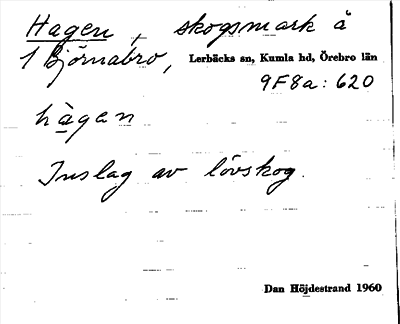 Hagen, skogsmark å
1 Björnabro, Lerbäcks sn, Kumla hd, Örebro län
9F8a:620
hàgen
Inslag av lövskog.
Dan Höjdestrand 1960